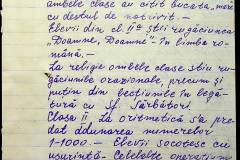 ambele clase au citit bucata, mer-
cu destul de potrivit. -
Elevii din cl. IIa știu rugăciunea
"Doamne, Doamne" în limba ro-
mână. -
La religie ambele clase știu ru-
găciunile ocazionale, precum și
puțin din lecțiunile în legă-
tură cu Sf. Sărbători.
Clasa II La aritmetică s'a pre-
dat adunarea numerelor
1-1000. - Elevii socotesc cu
ușurință. - Celelalte operațiuni